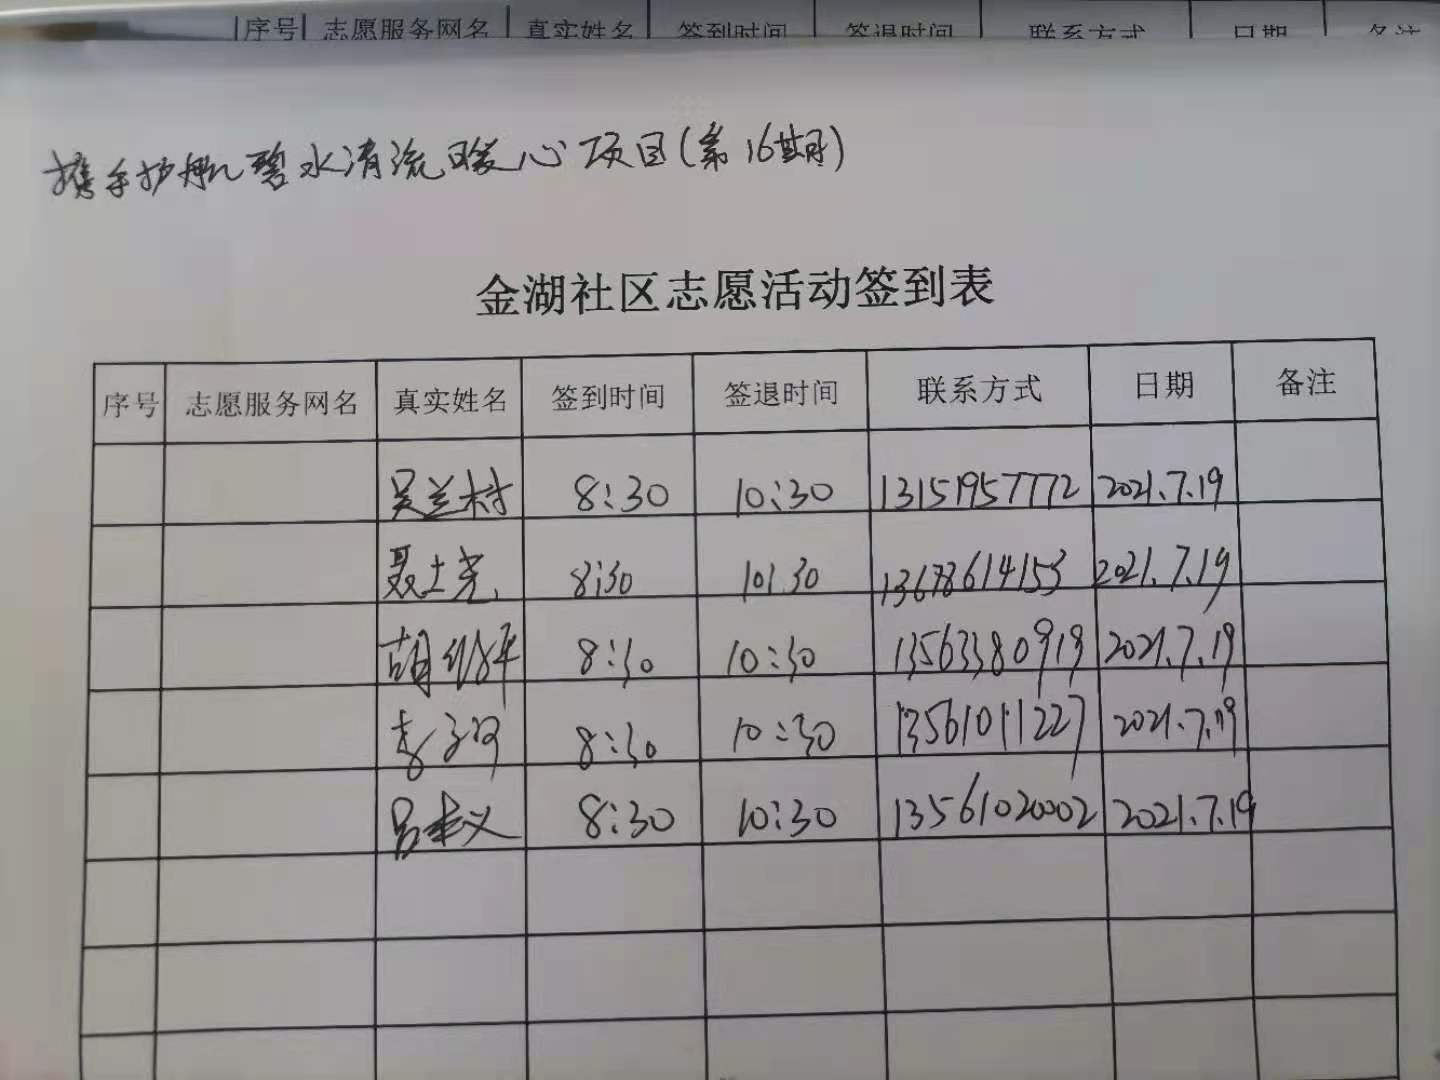 序号 志愿服务网名 真实姓名 签到时间 签退时间 联系方式 日期 备注
携手护航碧水清流暖心项目(第16期)
金湖社区志愿活动签到表
序号 志愿服务网名 真实姓名 签到时间 签退时间 联系方式 日期 备注
吴兰村 8:30 10:30 13151957772 2021.7.19
聂士尧 8:30 10:30 13678614153 2021.7.19
胡 8:30 10:30 13563380919 2021.7.19
李 8:30 10:30 13561011227 2021.7.19
吕 义 8:30 10:30 13561020002 2021.7.19